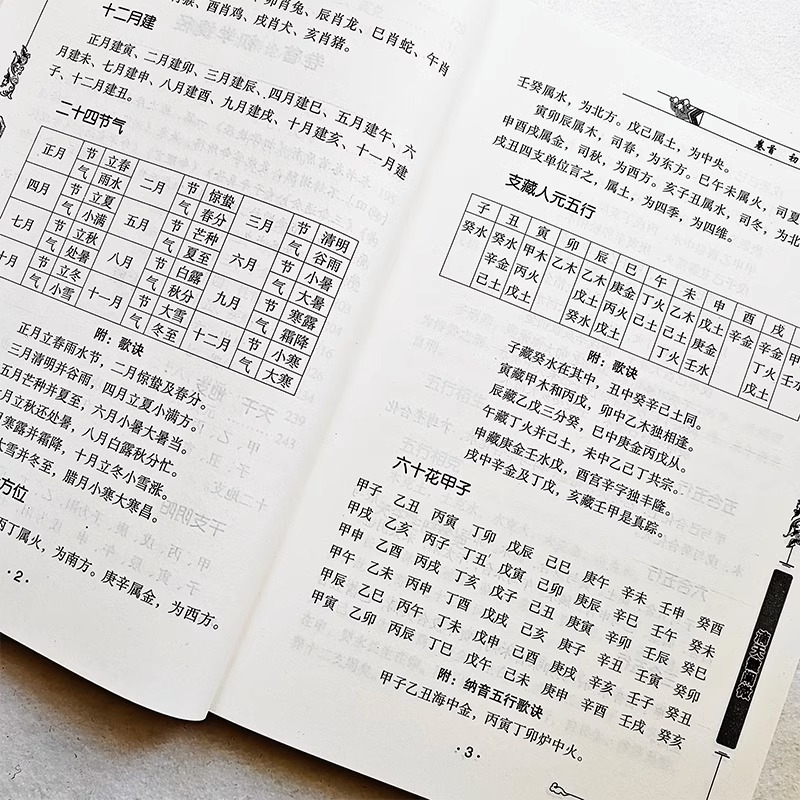 肖猴、酉肖鸡、戌肖犬、亥肖猪。
卯肖兔、辰肖龙、巳肖蛇、午肖
十二月建
正月建寅、二月建卯、三月建辰、四月建巳、五月建午、六
月建未、七月建申、八月建酉、九月建戌、十月建亥、十一月建
子、十二月建丑。
二十四节气
正月 节 立春 二月 节 惊蛰 三月 节 清明
气 雨水 气 春分 气 谷雨
四月 节 立夏 五月 节 芒种 六月 节 小暑
气 小满 气 夏至 气 大暑
七月 节 立秋 八月 节 白露 九月 节 寒露
气 处暑 气 秋分 气 霜降
十月 节 立冬 十一月 节 大雪 十二月 节 小寒
气 小雪 气 冬至 气 大寒
附：歌诀
正月立春雨水节，二月惊蛰及春分。
三月清明并谷雨，四月立夏小满方。
五月芒种并夏至，六月小暑大暑当。
七月立秋还处暑，八月白露秋分忙。
寒露并霜降，十月立冬小雪涨。
大雪并冬至，腊月小寒大寒昌。
方位
丙丁属火，为南方。庚辛属金，为西方。
·2·
卷首 初
壬癸属水，为北方。戊己属土，为中央。
寅卯辰属木，司春，为东方。巳午未属火，司夏
申酉戌属金，司秋，为西方。亥子丑属水，司冬，为北
戌丑四支单位言之，属土，为四季，为四维。
支藏人元五行
子 丑 寅 卯 辰 巳 午 未 申 酉 戌
癸水 癸水 甲木 乙木 乙木 庚金 丁火 乙木 戊土 辛金 辛金 甲
辛金 丙火 戊土 丙火 己土 己土 庚金 丁火 壬水
己土 戊土 癸水 戊土 丁火 壬水 戊土
附：歌诀
子藏癸水在其中，丑中癸辛己土同。
寅藏甲木和丙戊，卯中乙木独相逢。
辰藏乙戊三分癸，巳中庚金丙戊从。
午藏丁火并己土，未中乙己丁共宗。
申藏庚金壬水戊，酉宫辛字独丰隆。
戌中辛金及丁戊，亥藏壬甲是真踪。
六十花甲子
甲子 乙丑 丙寅 丁卯 戊辰 己巳 庚午 辛未 壬申 癸酉
甲戌 乙亥 丙子 丁丑 戊寅 己卯 庚辰 辛巳 壬午 癸未
甲申 乙酉 丙戌 丁亥 戊子 己丑 庚寅 辛卯 壬辰 癸巳
甲午 乙未 丙申 丁酉 戊戌 己亥 庚子 辛丑 壬寅 癸卯
甲辰 乙巳 丙午 丁未 戊申 己酉 庚戌 辛亥 壬子 癸丑
甲寅 乙卯 丙辰 丁巳 戊午 己未 庚申 辛酉 壬戌 癸亥
附：纳音五行歌诀
甲子乙丑海中金，丙寅丁卯炉中火。
·3·